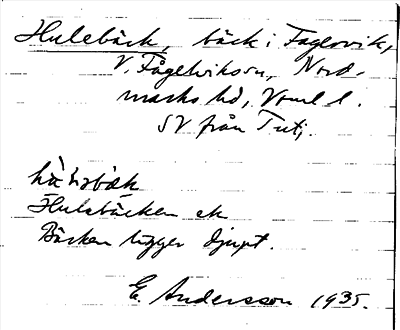 Hulebäck, bäck i Fagervik,
V. Fågelviks sn, Nord-
marks hd, Vrml l.
SV från Tutj.
Hulebäcken ek
Bäcken ligger djupt.
E. Andersson 1935.